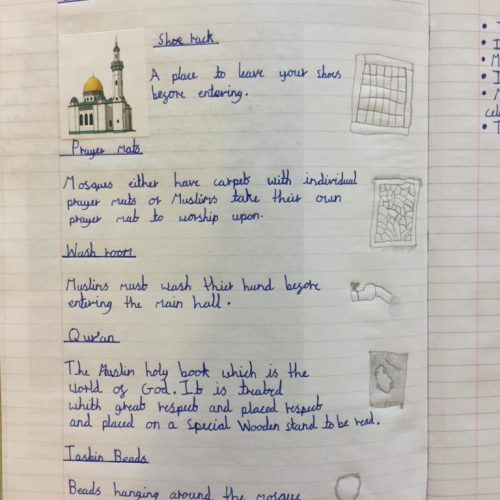 Shoe rack
A place to leave your shoes
before entering.
Prayer mats
Mosques either have carpet with individual
prayer mats or Muslims take their own
prayer mat to worship upon.
Wash room
Muslims must wash thier hand before
entering the main hall.
Qur'an
The Muslim holy book which is the
world of God. It is treated
whith great respect and placed respect
and placed on a special Wooden stand to be read.
Tasbin Beads
Beads hanging around the mosque